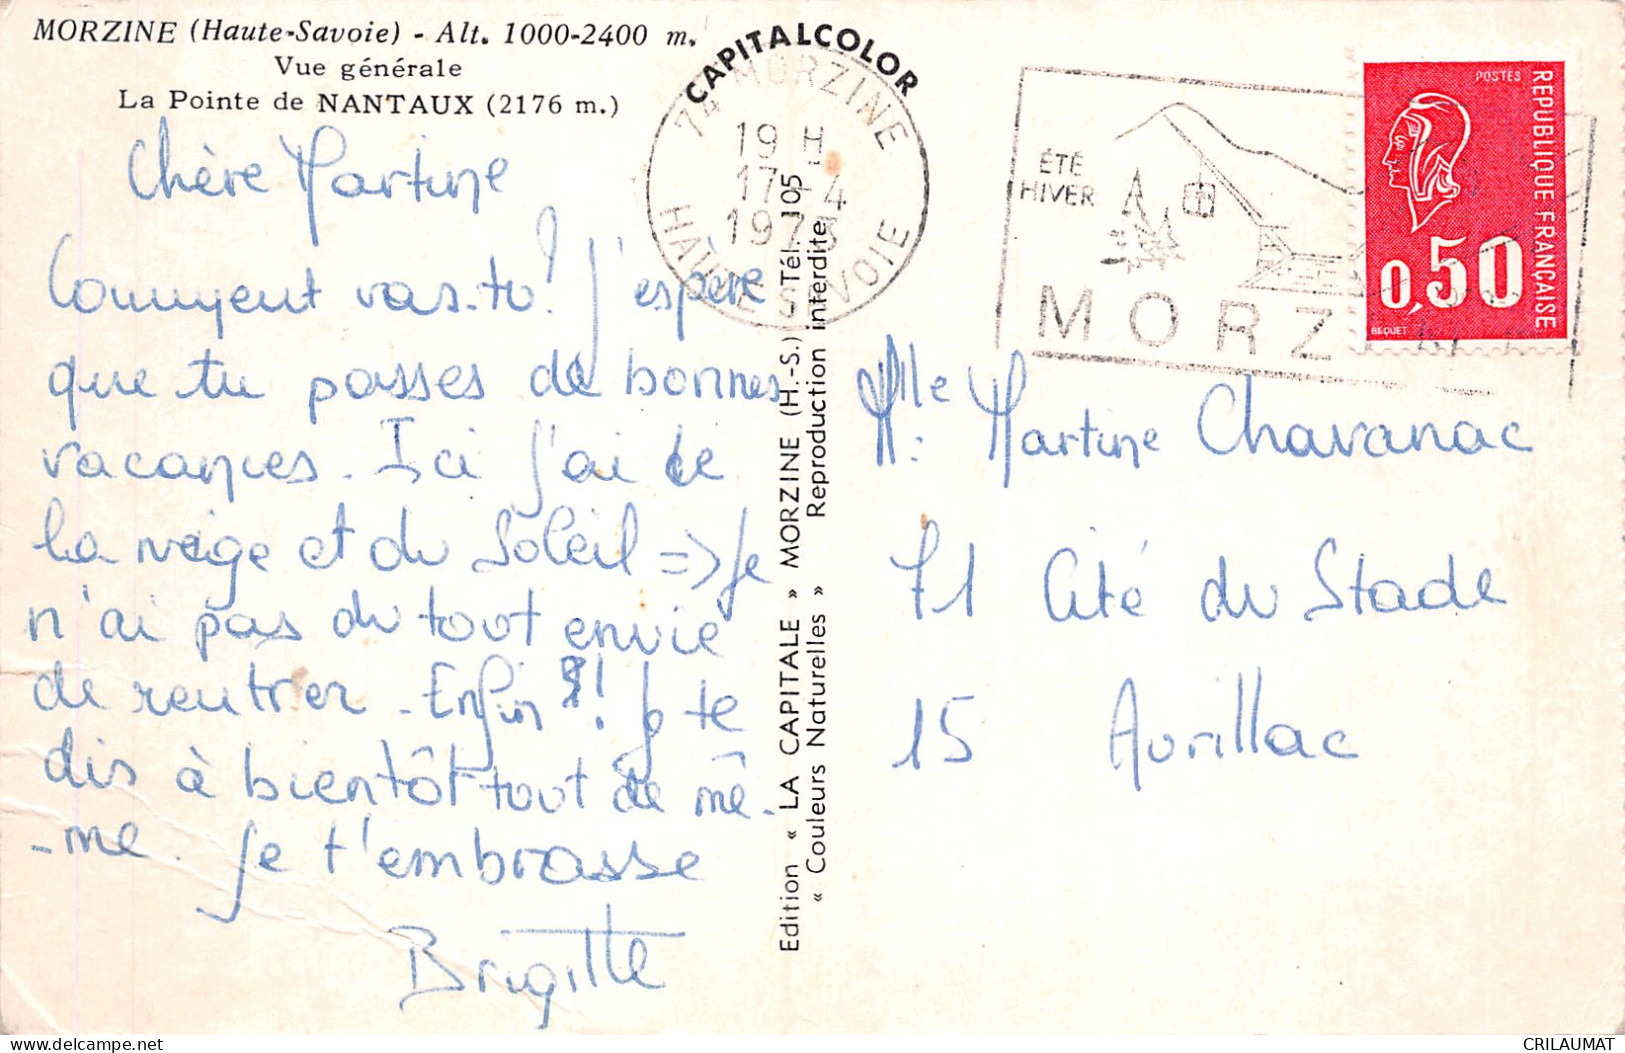 MORZINE (Haute-Savoie) - Alt. 1000-2400 m.
Vue générale
La Pointe de NANTAUX (2176 m.)
CAPITALCOLOR
74 MORZINE
19 H
17-4
1973
HAUTE SAVOIE
ÉTÉ
HIVER
MORZ
POSTES
REPUBLIQUE FRANÇAISE
0,50
BEQUET
Chère Martine
Comment vas-tu? J'espère
que tu passes de bonnes
vacances. Ici j'ai de
la neige et du soleil => Je
n'ai pas du tout envie
de rentrer. Enfin ! Je te
dis à bientôt tout de mê-
-me. Je t'embrasse
Brigitte
Edition « LA CAPITALE » MORZINE (H.-S.) Tél. 105
« Couleurs Naturelles » Reproduction interdite
Mlle Martine Chavanac
71 Cité du Stade
15 Aurillac
CRILAUMAT